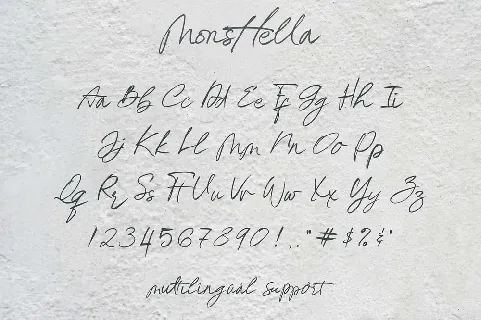 MonsHella
Aa Bb Cc Dd Ee Ff Gg Hh Ii
Jj Kk Ll Mm Nn Oo Pp
Qq Rr Ss Tt Uu Vv Ww Xx Yy Zz
1234567890!.," # $ % & '
multilingual support